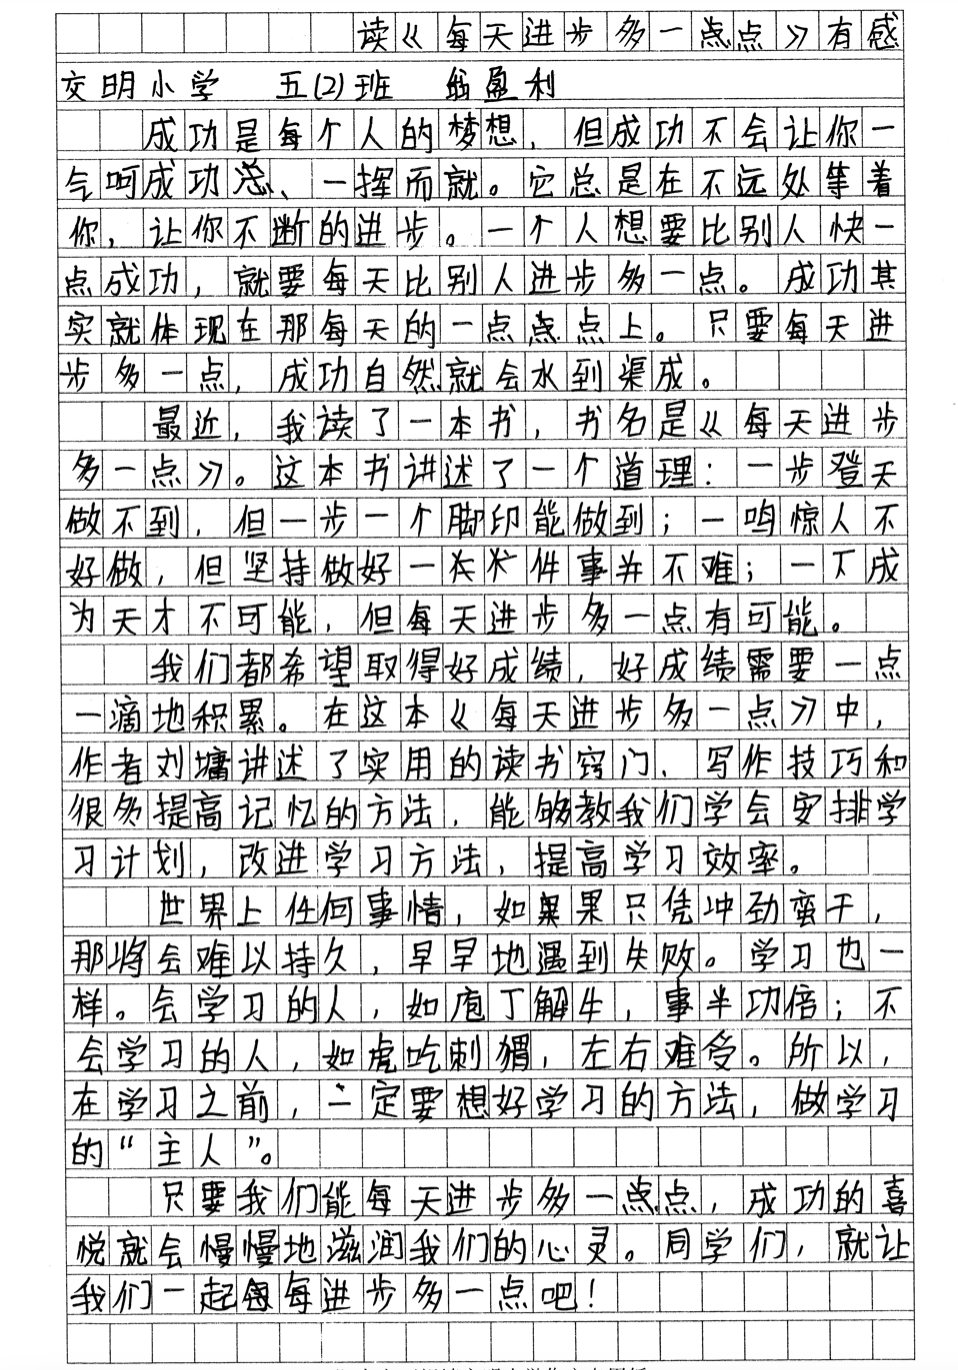 读《每天进步多一点点》有感
交明小学 五(2)班 翁盈利
成功是每个人的梦想，但成功不会让你一
气呵成功总、一挥而就。它总是在不远处等着
你，让你不断的进步。一个人想要比别人快一
点成功，就要每天比别人进步多一点。成功其
实就体现在那每天的一点点点上。只要每天进
步多一点，成功自然就会水到渠成。
最近，我读了一本书，书名是《每天进步
多一点》。这本书讲述了一个道理：一步登天
做不到，但一步一个脚印能做到；一鸣惊人不
好做，但坚持做好一件事并不难；一下成
为天才不可能，但每天进步多一点有可能。
我们都希望取得好成绩，好成绩需要一点
一滴地积累。在这本《每天进步多一点》中，
作者刘墉讲述了实用的读书窍门、写作技巧和
很多提高记忆的方法，能够教我们学会安排学
习计划，改进学习方法，提高学习效率。
世界上任何事情，如果果只凭冲劲蛮干，
那将会难以持久，早早地遇到失败。学习也一
样。会学习的人，如庖丁解牛，事半功倍；不
会学习的人，如虎吃刺猬，左右难受。所以，
在学习之前，一定要想好学习的方法，做学习
的“主人”。
只要我们能每天进步多一点点，成功的喜
悦就会慢慢地滋润我们的心灵。同学们，就让
我们一起每每进步多一点吧！